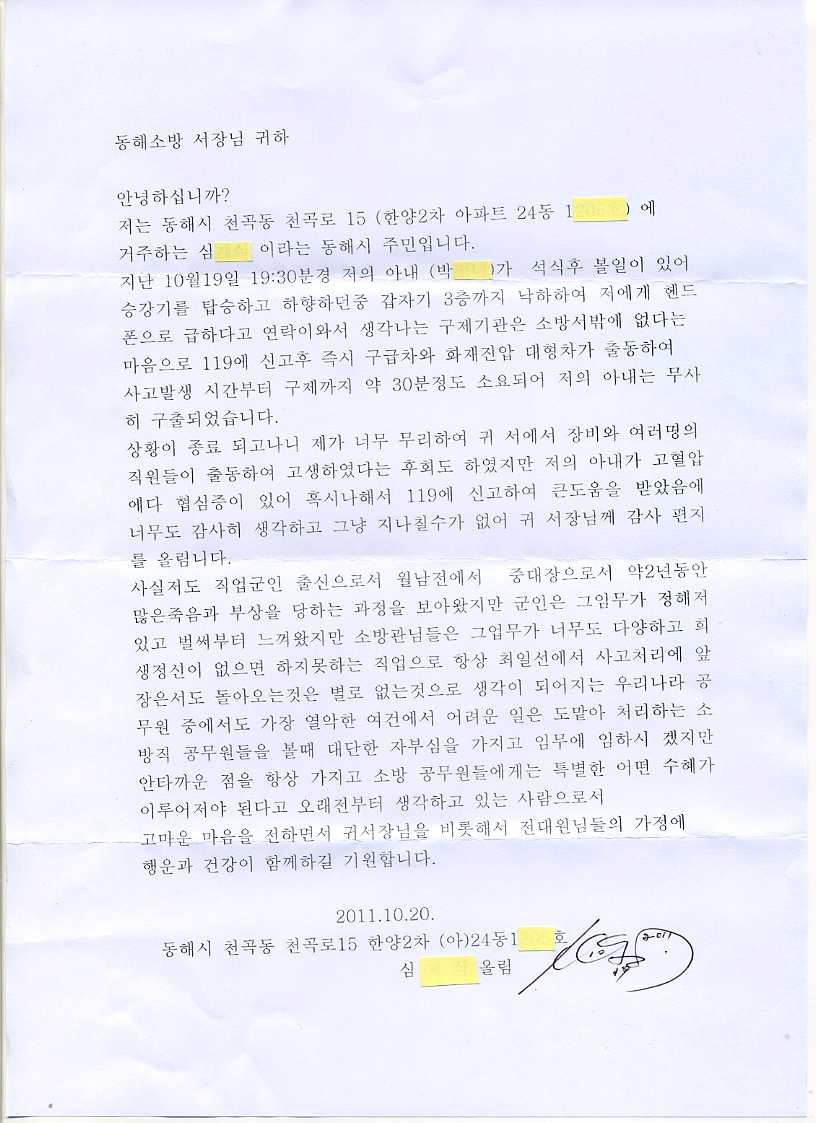 동해소방 서장님 귀하
안녕하십니까?
저는 동해시 천곡동 천곡로 15 (한양2차 아파트 24동 1) 에
거주하는 심 이라는 동해시 주민입니다.
지난 10월19일 19:30분경 저의 아내 (박)가 석식후 볼일이 있어
승강기를 탑승하고 하향하던중 갑자기 3층까지 낙하하여 저에게 헨드
폰으로 급하다고 연락이와서 생각나는 구제기관은 소방서밖에 없다는
마음으로 119에 신고후 즉시 구급차와 화재진압 대형차가 출동하여
사고발생 시간부터 구제까지 약 30분정도 소요되어 저의 아내는 무사
히 구출되었습니다.
상황이 종료 되고나니 제가 너무 무리하여 귀 서에서 장비와 여러명의
직원들이 출동하여 고생하였다는 후회도 하였지만 저의 아내가 고혈압
에다 협심증이 있어 혹시나해서 119에 신고하여 큰도움을 받았음에
너무도 감사히 생각하고 그냥 지나칠수가 없어 귀 서장님께 감사 편지
를 올림니다.
사실저도 직업군인 출신으로서 월남전에서 중대장으로서 약2년동안
많은죽음과 부상을 당하는 과정을 보아왔지만 군인은 그임무가 정해저
있고 벌써부터 느껴왔지만 소방관님들은 그업무가 너무도 다양하고 희
생정신이 없으면 하지못하는 직업으로 항상 최일선에서 사고처리에 앞
장은서도 돌아오는것은 별로 없는것으로 생각이 되어지는 우리나라 공
무원 중에서도 가장 열악한 여건에서 어려운 일은 도맡아 처리하는 소
방직 공무원들을 볼때 대단한 자부심을 가지고 임무에 임하시 겠지만
안타까운 점을 항상 가지고 소방 공무원들에게는 특별한 어떤 수혜가
이루어저야 된다고 오래전부터 생각하고 있는 사람으로서
고마운 마음을 전하면서 귀서장님을 비롯해서 전대원님들의 가정에
행운과 건강이 함께하길 기원합니다.
2011.10.20.
동해시 천곡동 천곡로15 한양2차 (아)24동1호
심 올림
2011